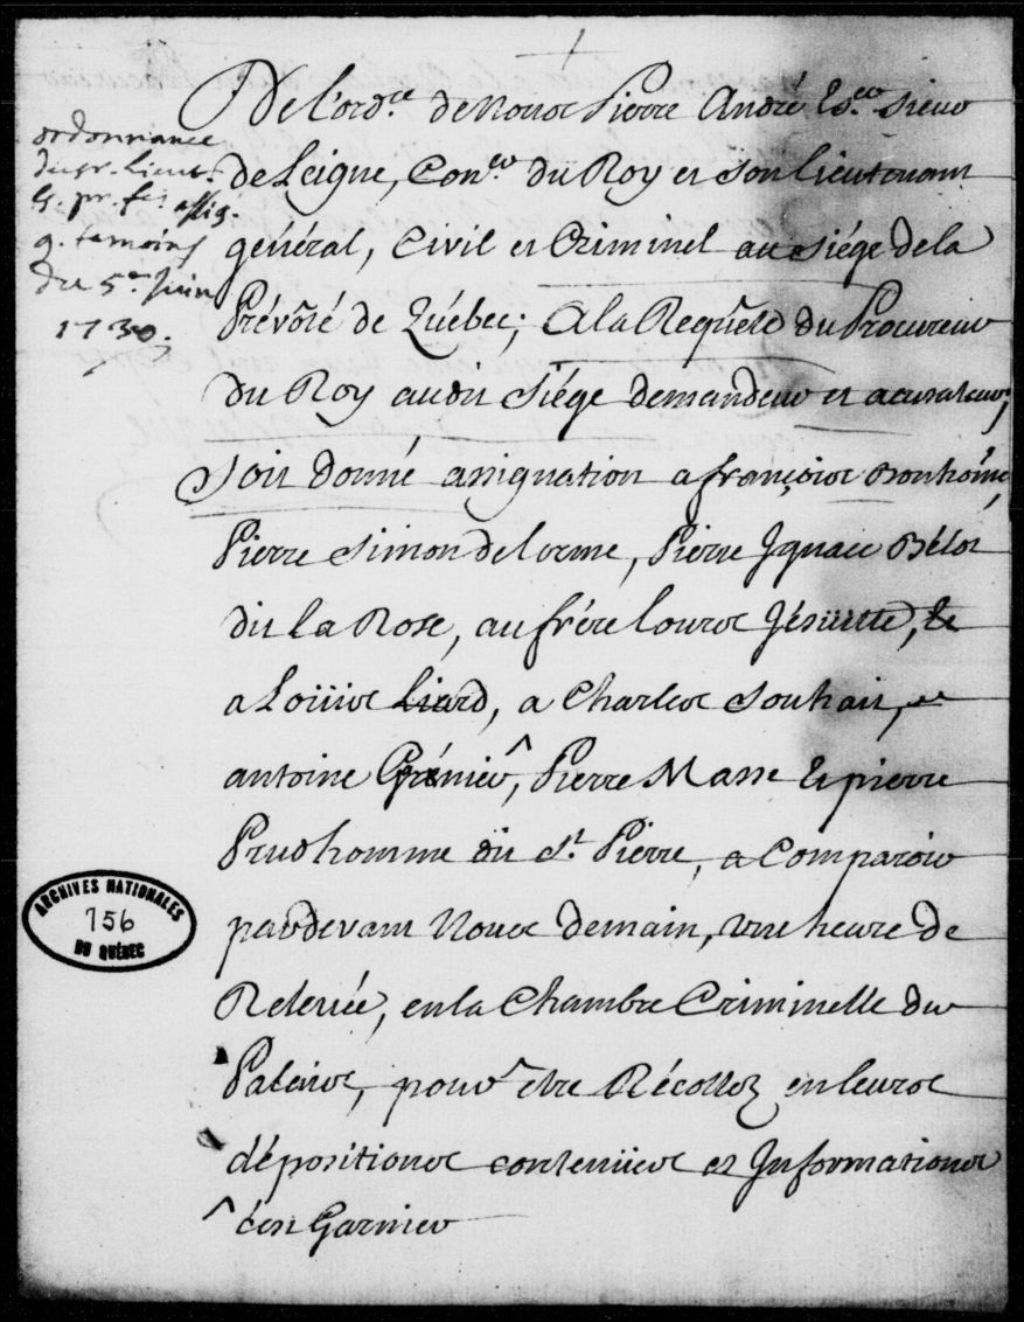 De L'ord.ce de Nous Pierre André Es.er Sieur
de Leigne, Con.er du Roy et Son Lieutenant
général, Civil et Criminel au Siége de la
Prévôté de Québec; A la Requête du Procureur
du Roy audit Siége demandeur et acusateur,
Soit donné assignation a françois Bonhôme,
Pierre Simon delorme, Pierre Ignace Bélot
dit La Rose, au frére Louis Jésuitte, et
a Loüis Liard, a Charles Souhait, et
antoine Grénier^, Pierre Masse Et pierre
Prudhomme dit S.t Pierre, a Comparoir
pardevant Nous demain, Une heure de
Relevée, en la Chambre Criminelle du
Palais, pour être Récollez en leurs
dépositions contenües et Informations
^ c'est Garnier
ordonnance
du sr. Lieut.
G. pr. f.e assig.
q. temoins
du 5.e Juin
1730.
ARCHIVES NATIONALES
756
DU QUÉBEC